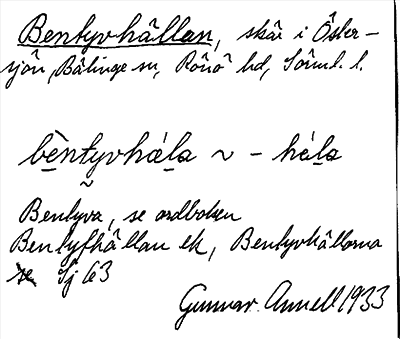 Bentyvhällan, skär i Öster-
sjön, Bälinge sn, Rönö hd, Söml. l.
bèntyvhǽla ~ - hǽla
Bentyva, se ordboken
Bentyfhällan ek, Bentyvhällarna
Sj 63
Gunnar Annell 1933